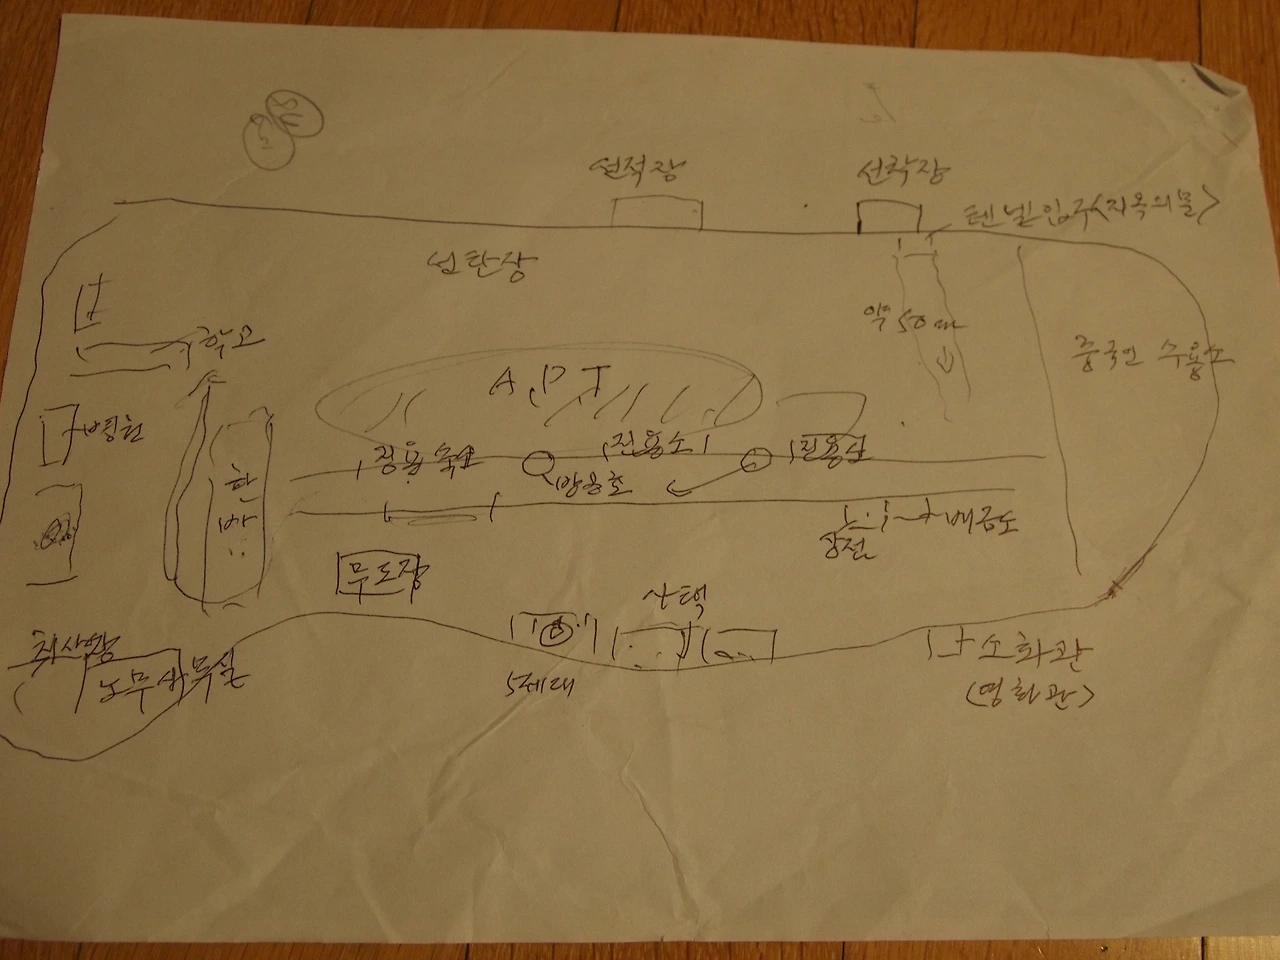 선적장
선착장
텐넬입구(지옥의문)
선탄장
약 50m
학교
중국인 수용소
APT
병원
징용숙소
징용소
징용소
방공호
한
바
배급소
상전
무도장
사택
취사장
노무사무실
5세대
소화관
(영화관)